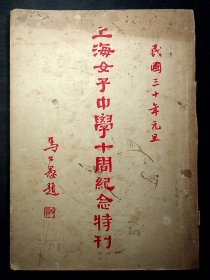 民國三十年元旦
上海女子中學十周紀念特刊
馬公愚題